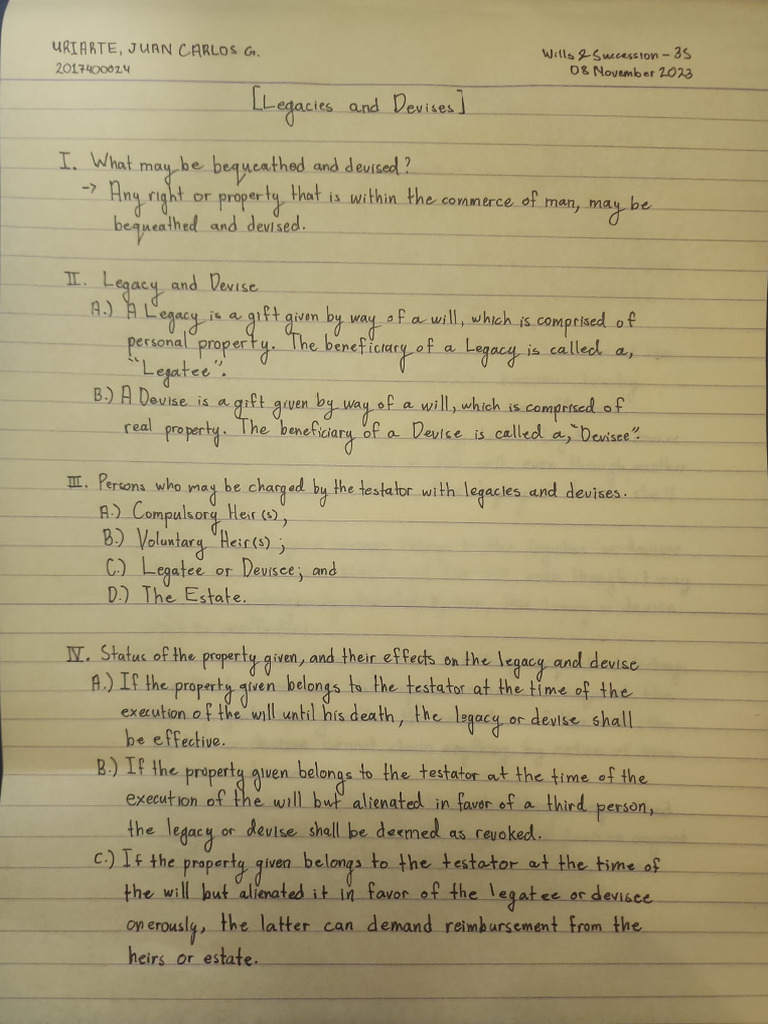 URIARTE, JUAN CARLOS G.
2017400024
Wills & Succession - 3S
08 November 2023
[Legacies and Devises]
I. What may be bequeathed and devised?
-> Any right or property that is within the commerce of man, may be
bequeathed and devised.
II. Legacy and Devise
A.) A Legacy is a gift given by way of a will, which is comprised of
personal property. The beneficiary of a Legacy is called a,
"Legatee".
B.) A Devise is a gift given by way of a will, which is comprised of
real property. The beneficiary of a Devise is called a, "Devisee".
III. Persons who may be charged by the testator with legacies and devises.
A.) Compulsory Heir(s);
B.) Voluntary Heir(s);
C.) Legatee or Devisee; and
D.) The Estate.
IV. Status of the property given, and their effects on the legacy and devise
A.) If the property given belongs to the testator at the time of the
execution of the will until his death, the legacy or devise shall
be effective.
B.) If the property given belongs to the testator at the time of the
execution of the will but alienated in favor of a third person,
the legacy or devise shall be deemed as revoked.
C.) If the property given belongs to the testator at the time of
the will but alienated it in favor of the legatee or devisee
onerously, the latter can demand reimbursement from the
heirs or estate.